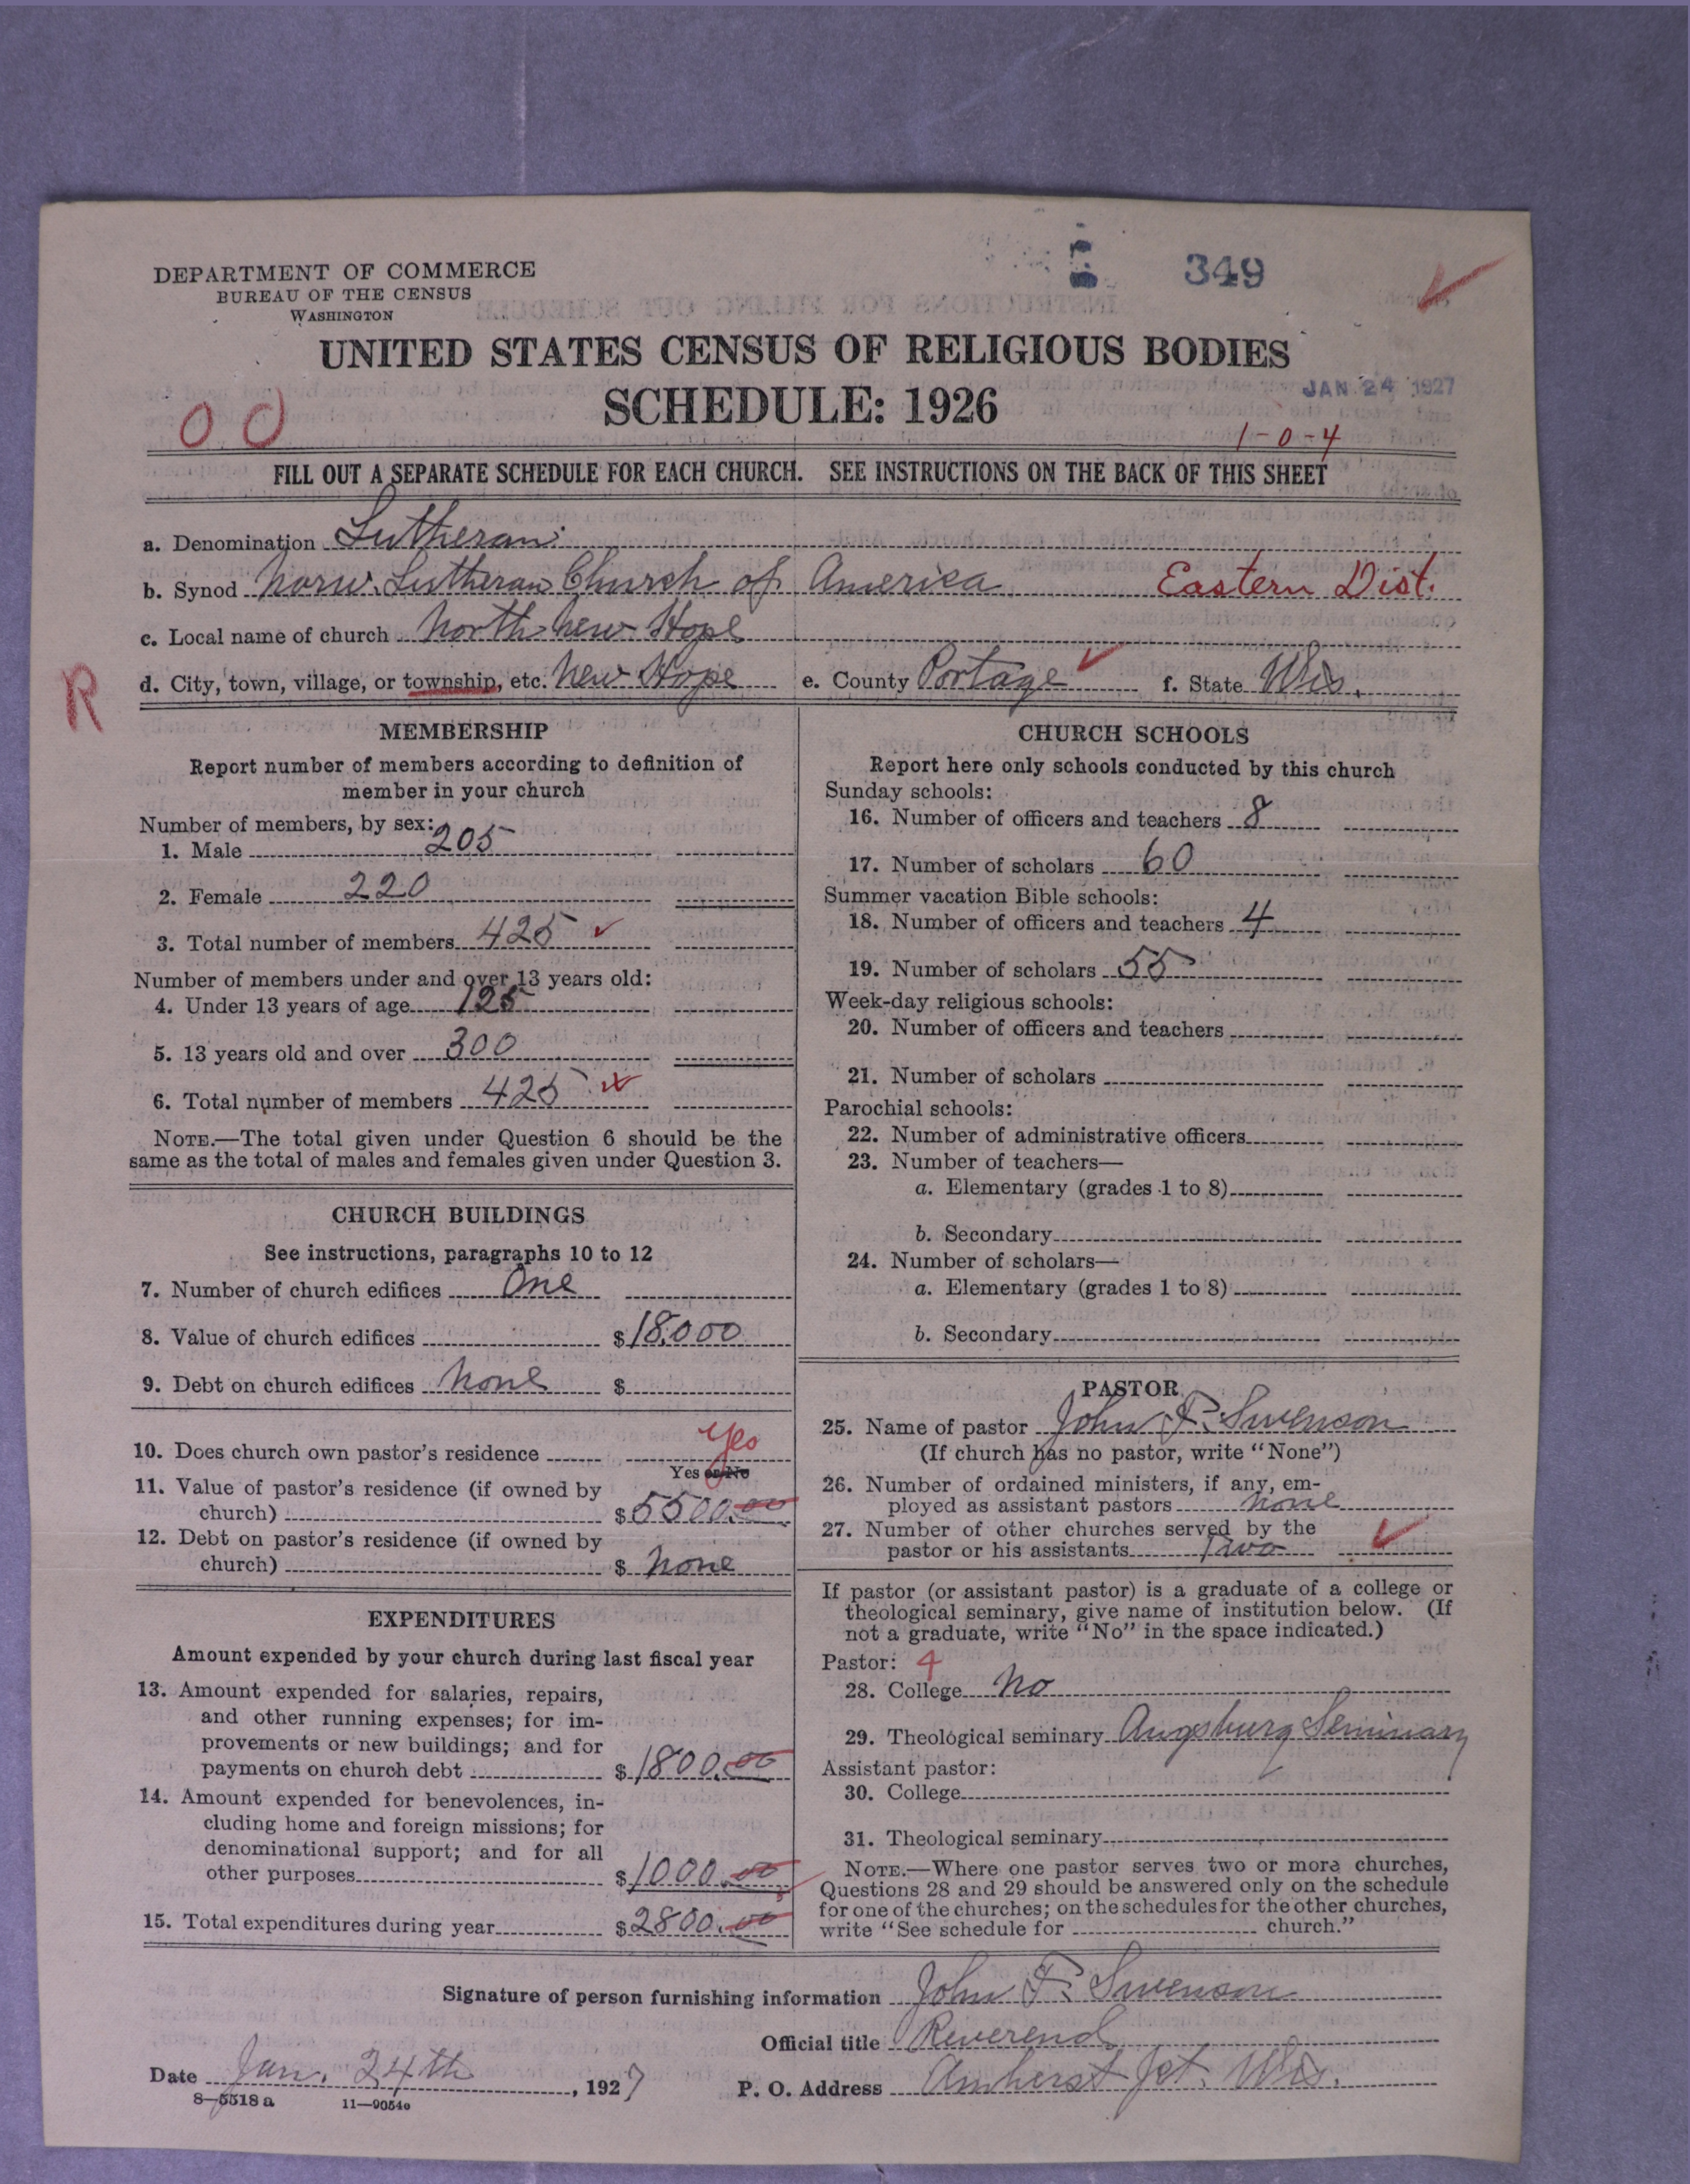 349
DEPARTMENT OF COMMERCE
BUREAU OF THE CENSUS
WASHINGTON
UNITED STATES CENSUS OF RELIGIOUS BODIES
SCHEDULE: 1926
JAN 24 1927
00
1-0-4
FILL OUT A SEPARATE SCHEDULE FOR EACH CHURCH. SEE INSTRUCTIONS ON THE BACK OF THIS SHEET
a. Denomination Lutheran
b. Synod Norw. Lutheran Church of America Eastern Dist.
c. Local name of church North New Hope
R
d. City, town, village, or township, etc. New Hope e. County Portage f. State Wis.
MEMBERSHIP
Report number of members according to definition of
member in your church
Number of members, by sex:
1. Male 205
2. Female 220
3. Total number of members 425
Number of members under and over 13 years old:
4. Under 13 years of age 125
5. 13 years old and over 300
6. Total number of members 425
NOTE.—The total given under Question 6 should be the
same as the total of males and females given under Question 3.
CHURCH BUILDINGS
See instructions, paragraphs 10 to 12
7. Number of church edifices One
8. Value of church edifices $18,000
9. Debt on church edifices None $
10. Does church own pastor's residence Yes
Yes or No
11. Value of pastor's residence (if owned by
church) $5500.00
12. Debt on pastor's residence (if owned by
church) $ None
EXPENDITURES
Amount expended by your church during last fiscal year
13. Amount expended for salaries, repairs,
and other running expenses; for im-
provements or new buildings; and for
payments on church debt $1800.00
14. Amount expended for benevolences, in-
cluding home and foreign missions; for
denominational support; and for all
other purposes $1000.00
15. Total expenditures during year $2800.00
CHURCH SCHOOLS
Report here only schools conducted by this church
Sunday schools:
16. Number of officers and teachers 8
17. Number of scholars 60
Summer vacation Bible schools:
18. Number of officers and teachers 4
19. Number of scholars 55
Week-day religious schools:
20. Number of officers and teachers
21. Number of scholars
Parochial schools:
22. Number of administrative officers
23. Number of teachers—
a. Elementary (grades 1 to 8)
b. Secondary
24. Number of scholars—
a. Elementary (grades 1 to 8)
b. Secondary
PASTOR
25. Name of pastor John F. Swenson
(If church has no pastor, write "None")
26. Number of ordained ministers, if any, em-
ployed as assistant pastors none
27. Number of other churches served by the
pastor or his assistants Two
If pastor (or assistant pastor) is a graduate of a college or
theological seminary, give name of institution below. (If
not a graduate, write "No" in the space indicated.)
Pastor: 4
28. College No
29. Theological seminary Augsburg Seminary
Assistant pastor:
30. College
31. Theological seminary
NOTE.—Where one pastor serves two or more churches,
Questions 28 and 29 should be answered only on the schedule
for one of the churches; on the schedules for the other churches,
write "See schedule for church."
Signature of person furnishing information John F. Swenson
Official title Reverend
Date Jan. 24th, 1927 P. O. Address Amherst Jct. Wis.
8—5518 a 11—9054e